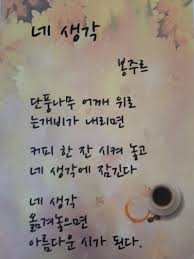 네 생각
봉주르
단풍나무 어깨 위로
는개비가 내리면
커피 한 잔 시켜 놓고
네 생각에 잠긴다
네 생각
옮겨놓으면
아름다운 시가 된다.